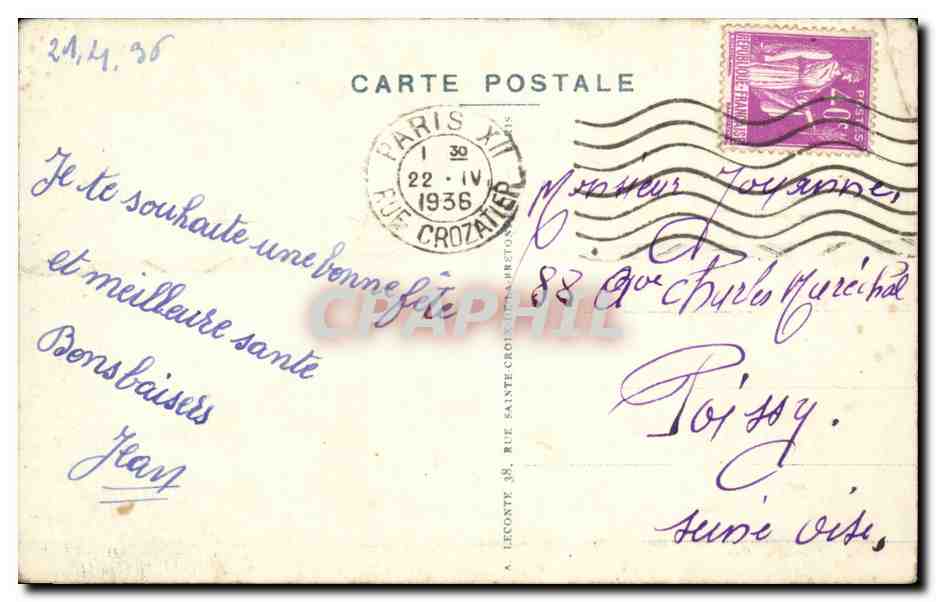 21.4.36
CARTE POSTALE
RÉPUBLIQUE-FRANÇAISE
POSTES
40c
PARIS XII
1 30
22 · IV
1936
RUE CROZATIER
Je te souhaite une bonne fête
et meilleure santé
Bons baisers
Jean
Monsieur
88 Ave Charles Maréchal
Poissy.
seine oise,
A. LECONTE 38, RUE SAINTE-CROIX-DE-LA-BRETONNERIE, PARIS
CPAPHIL